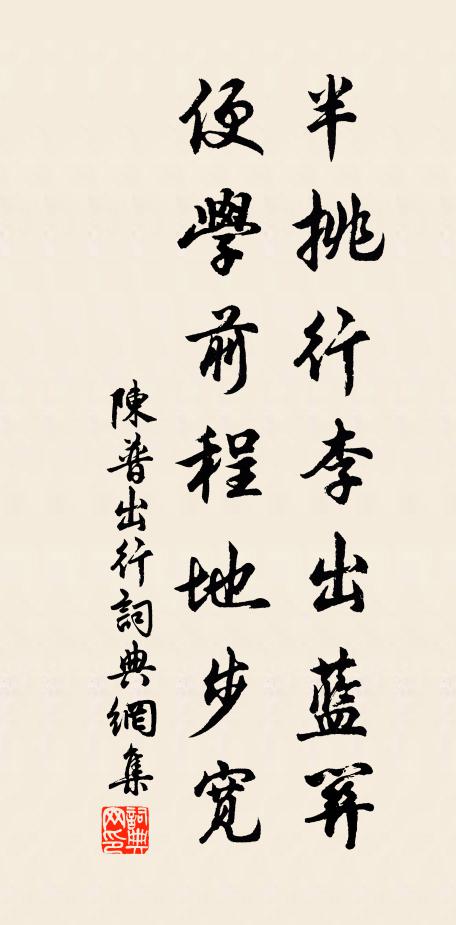 半挑行李出藍關
便學前程地步寬
陳普出行詞典網集
詞典网印